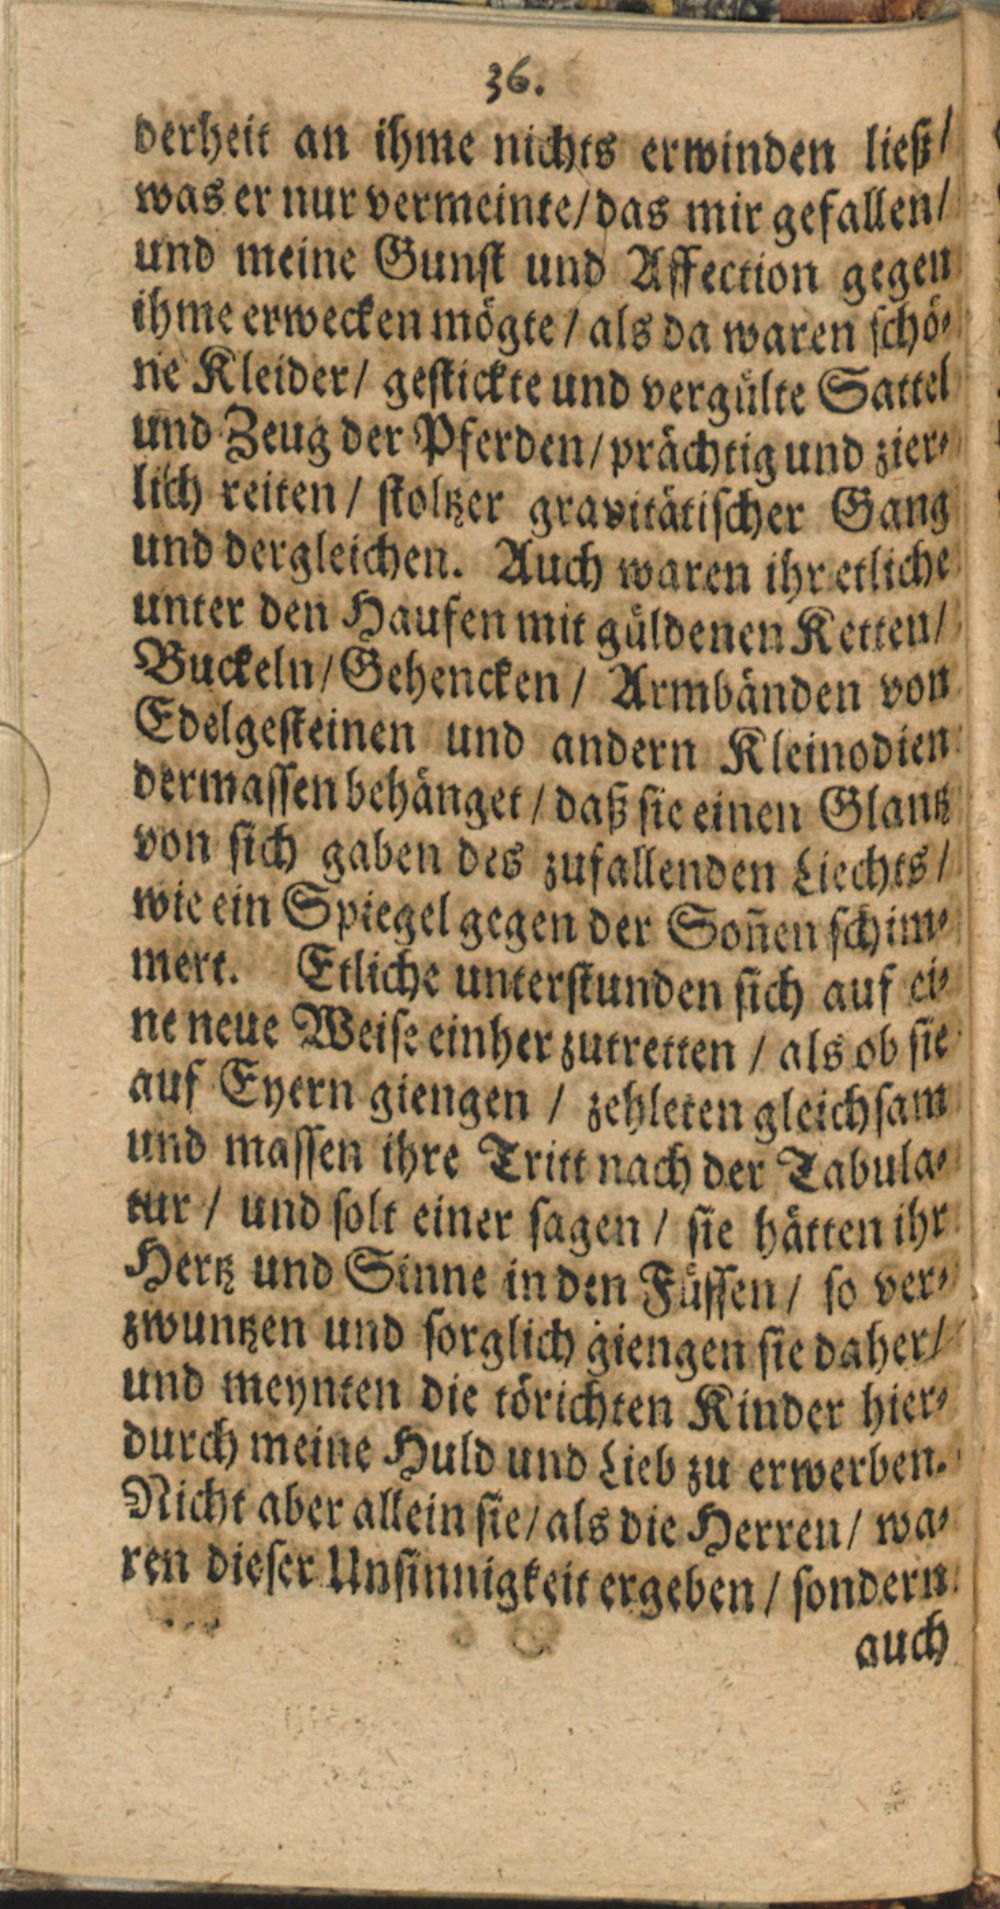 36.
derheit an ihme nichts erwinden ließ/
was er nur vermeinte/das mir gefallen/
und meine Gunst und Affection gegen
ihme erwecken mögte / als da waren schö-
ne Kleider/ gestickte und vergülte Sattel
und Zeug der Pferden/prächtig und zier-
lich reiten / stoltzer gravitätischer Gang
und dergleichen. Auch waren ihr etliche
unter den Haufen mit güldenen Ketten/
Buckeln/Gehencken / Armbänden von
Edelgesteinen und andern Kleinodien
dermassen behänget / daß sie einen Glantz
von sich gaben des zufallenden Liechts/
wie ein Spiegel gegen der Soñen schim-
mert. Etliche unterstunden sich auf ei-
ne neue Weise einher zutretten / als ob sie
auf Eyern giengen / zehleten gleichsam
und massen ihre Tritt nach der Tabula-
tur / und solt einer sagen / sie hätten ihr
Hertz und Sinne in den Füssen / so ver-
zwuntzen und sorglich giengen sie daher/
und meynten die törichten Kinder hier-
durch meine Huld und Lieb zu erwerben.
Nicht aber allein sie/als die Herren/ wa-
ren dieser Unsinnigkeit ergeben / sondern
auch